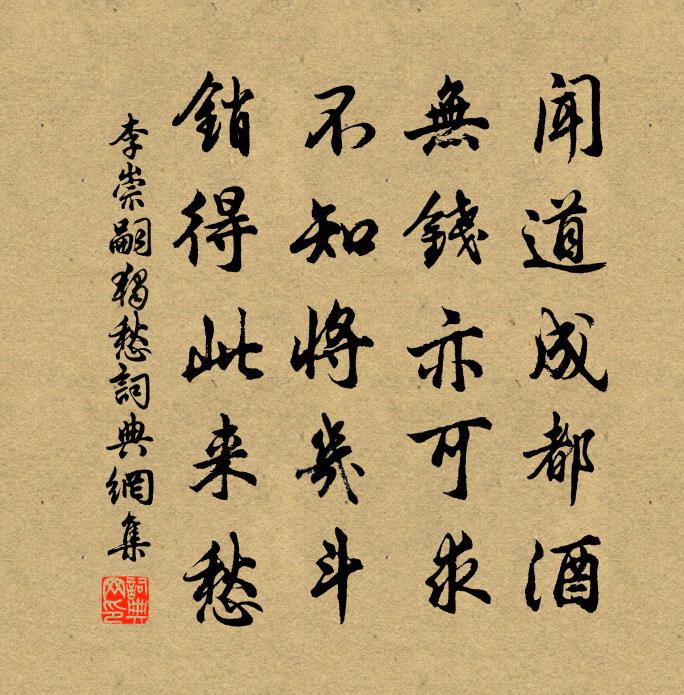 聞道成都酒
無錢亦可求
不知將幾斗
銷得此来愁
李崇嗣獨愁詞典網集
詞典网印